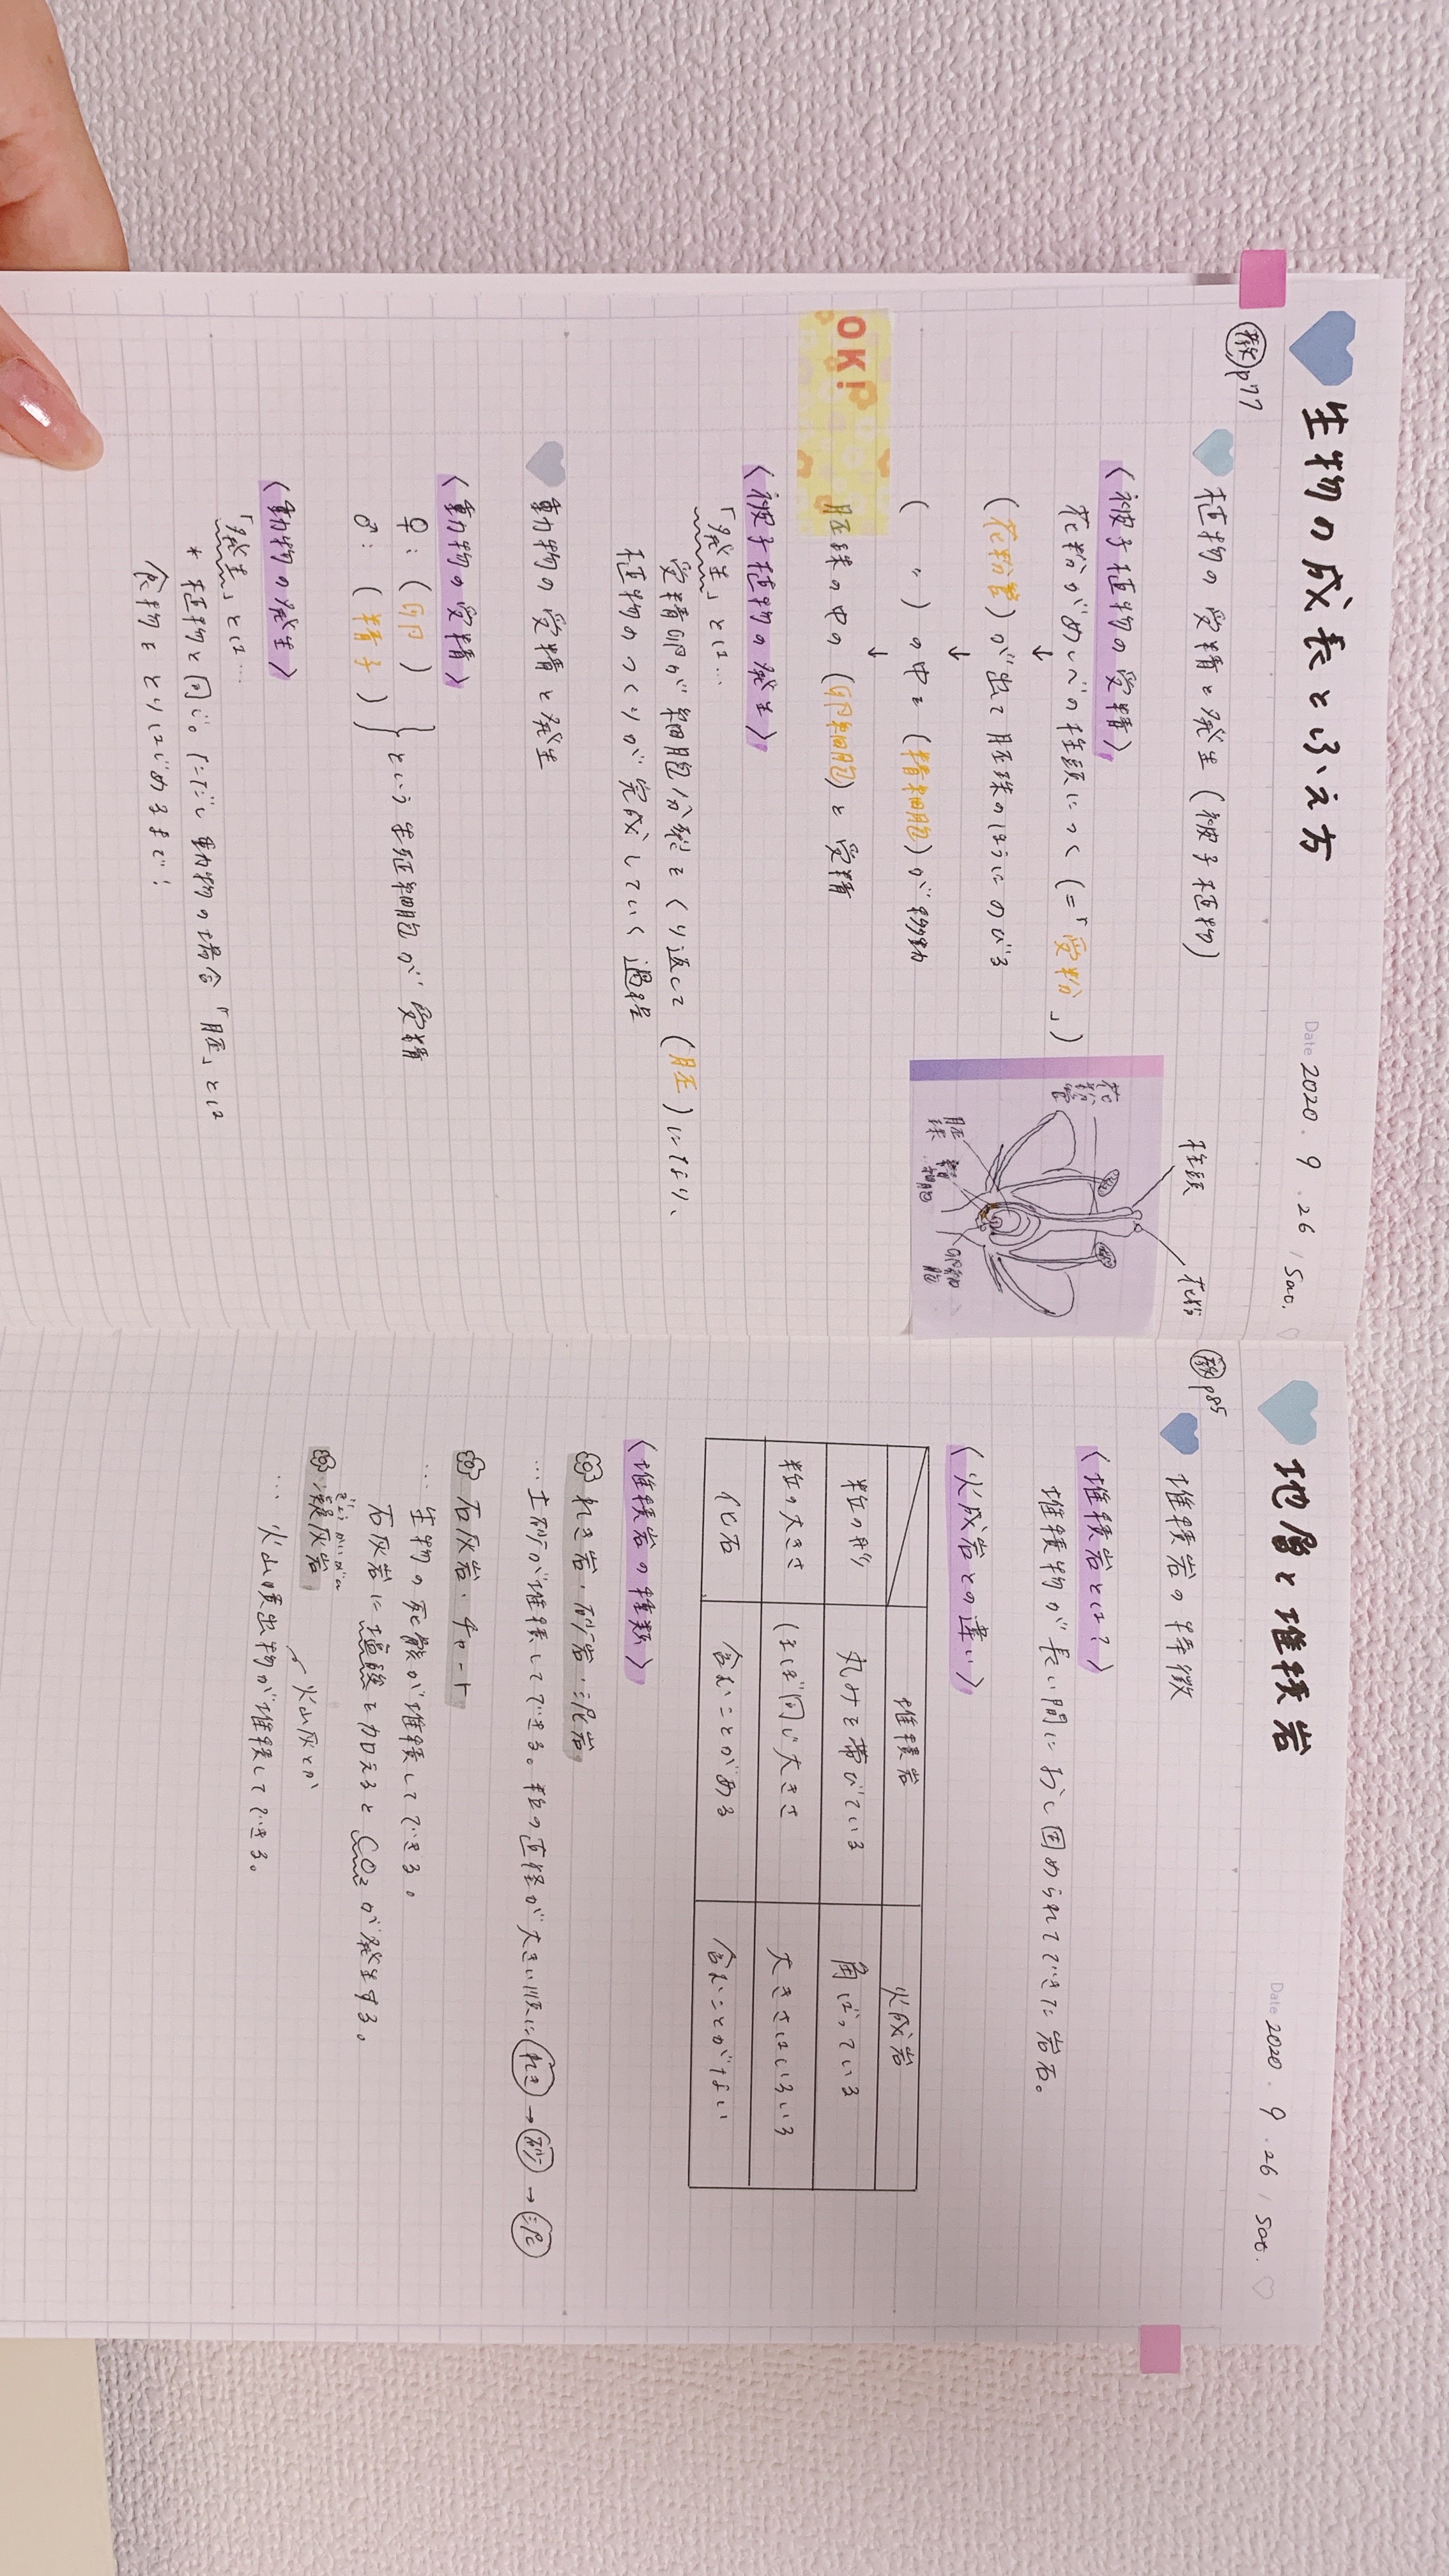 生物の成長とふえ方
Date 2020 . 9 . 26 / Sat. ♡
教 p77
植物の受精と発生 (被子植物)
〈被子植物の受精〉
花粉がめしべの柱頭につく (=「受粉」)
↓
(花粉管) が出て胚珠のほうにのびる
↓
( 〃 ) の中を (精細胞) が移動
↓
OK!
胚珠の中の (卵細胞) と受精
柱頭
花粉
花粉管
胚珠
精細胞
卵細胞
〈被子植物の発生〉
「発生」とは…
受精卵が細胞分裂をくり返して (胚) になり、
植物のつくりが完成していく過程
動物の受精と発生
〈動物の受精〉
♀: (卵)
♂: (精子) } という生殖細胞が受精
〈動物の発生〉
「発生」とは…
* 植物と同じ。ただし動物の場合「胚」とは
食物をとりはじめるまで!
地層と堆積岩
Date 2020 . 9 . 26 / Sat. ♡
教 p85
堆積岩の特徴
〈堆積岩とは?〉
堆積物が長い間におし固められてできた岩石。
〈火成岩との違い〉
堆積岩 火成岩
粒の形 丸みを帯びている 角ばっている
粒の大きさ ほぼ同じ大きさ 大きさはいろいろ
化石 含むことがある 含むことがない
〈堆積岩の種類〉
れき岩・砂岩・泥岩
…土砂が堆積してできる。粒の直径が大きい順に れき → 砂 → 泥
石灰岩・チャート
… 生物の死骸が堆積してできる。
石灰岩に塩酸を加えると CO₂ が発生する。
ぎょうかいがん
凝灰岩
火山灰とか
… 火山噴出物が堆積してできる。